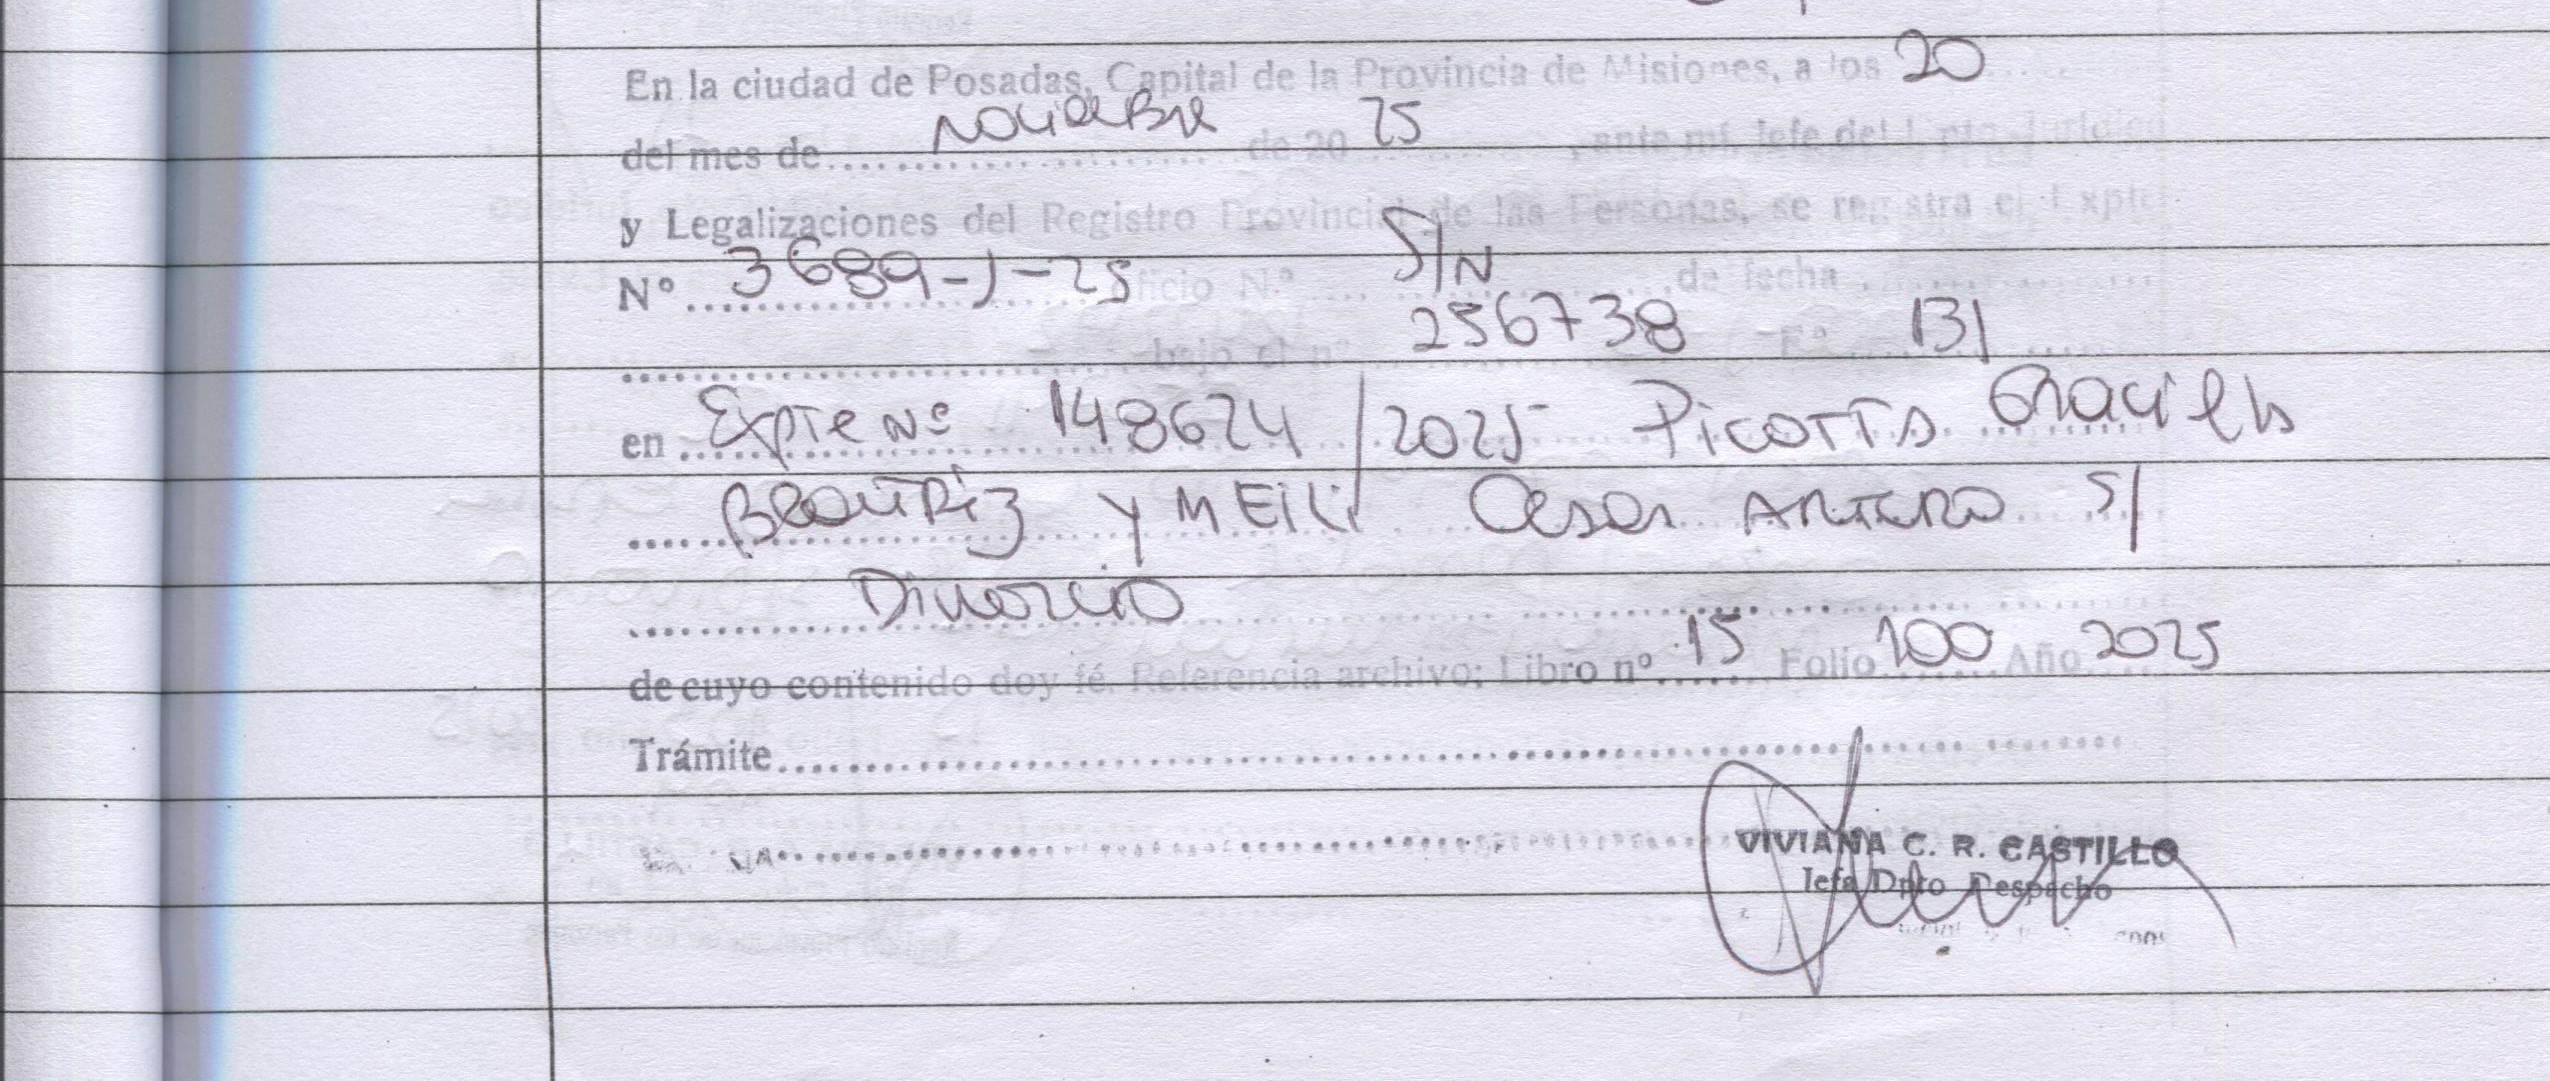 En la ciudad de Posadas, Capital de la Provincia de Misiones, a los 20
del mes de noviembre de 20 25, ante mí, Jefe del Dpto. Jurídico
y Legalizaciones del Registro Provincial de las Personas, se registra el Expte.
Nº 3689-J-25 oficio N.º S/N, de fecha
bajo el nº 256738 Fº 131
en Expte Nº 148624/2025 Picotta Graciela
Beatriz y MEili Cesar Antero S/
Divorcio
de cuyo contenido doy fé. Referencia archivo: Libro nº 15 Folio 100 Año 2025
Trámite
VIVIANA C. R. CASTILLO
Jefa Dpto Despacho